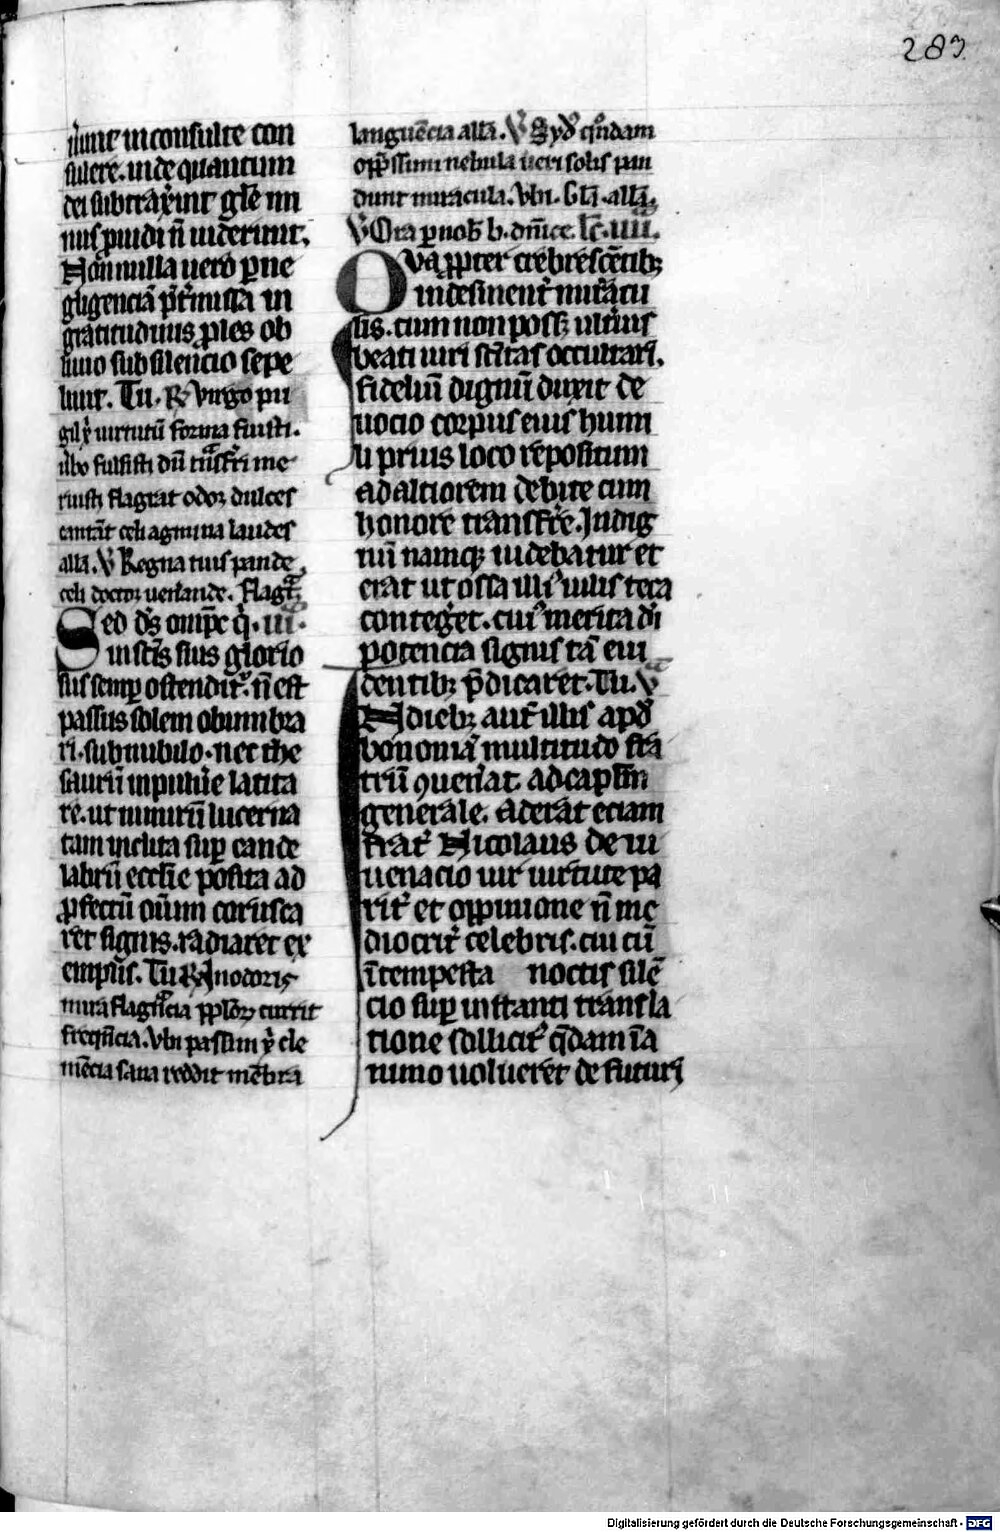 283
nunc inconsulte con
sulere. inde quantum
dei subtraxerint glorie mi
nus prouidi nō uiderunt.
Nonnulla uero per ne
gligenciā p̄termissa in
gratitudinis proles ob
liuio sub silencio sepe
liuit. Tu. R̄ Virgo pu
gil xp̄i uirtutū forma fuisti.
uerbo fulsisti
ruisti flagrat odor dulces
cantāt celi agmina laudes
allā. V̄ Regna tuis pande
celi doctor uenerande. Flagrat
Sed deus omp̄s q̄. iii.
in sc̄īs suis glorio
sus semper ostenditur. nō est
passus solem obumbra
ri sub nubilo. nec the
saurū inpune latita
re. ut nimirū lucerna
tam inclita super cande
labrū ecclīe posita ad
profectū oīum corusca
ret signis. radiaret ex
emplis. Tu R̄ In odoris
mira flagrācia populorū currit
frequēcia. Vbi passim xp̄i cle
mēcia sana reddit mēbra
languēcia allā. V̄ Sydus quondam
oppressum nebula ueri solis pan
dunt miracula. Vbi. Glā. allā.
V̄ Ora p̄ nob̄ b. dn̄ice. lc̄. iiii.
Quapropter crebrescētibꝫ
indesinenter miracu
lis. cum non possꝫ ulterius
beati uiri sc̄itas occultari.
fideliū dignū duxit de
uocio corpus eius humi
li prius loco repositum
ad alciorem debite cum
honore transferre. Indig
nū namqꝫ uidebatur et
erat ut ossa illius uilis teca
contegeret. cuius merita di
potencia signis tā eui
dentibꝫ p̄dicaret. Tu. V̄
In diebꝫ aut̄ illis apud
bononiā multitudo fra
trū ꝯuenerat. ad caplm̄
generale. Aderat eciam
frater Nicolaus de iu
uenacio uir uirtute pa
riter et oppinione nō me
diocriter celebris. cui cū
ītempesta noctis silē
cio super instanti transla
tione sollicitus qdam ī a
nimo uolueret de futuri
Digitalisierung gefördert durch die Deutsche Forschungsgemeinschaft - DFG